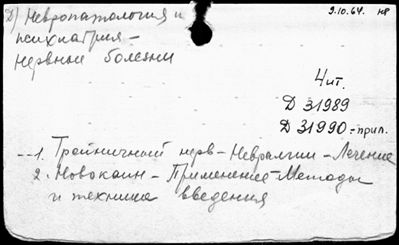 D) Невропатология и
психиатрия –
нервные болезни
9.10.64. нр
Чит.
D 31989
D 31990 - прил.
1. Тройничный нерв – Невралгии – Лечение
2. Новокаин – Применение – Методы
и техника введения